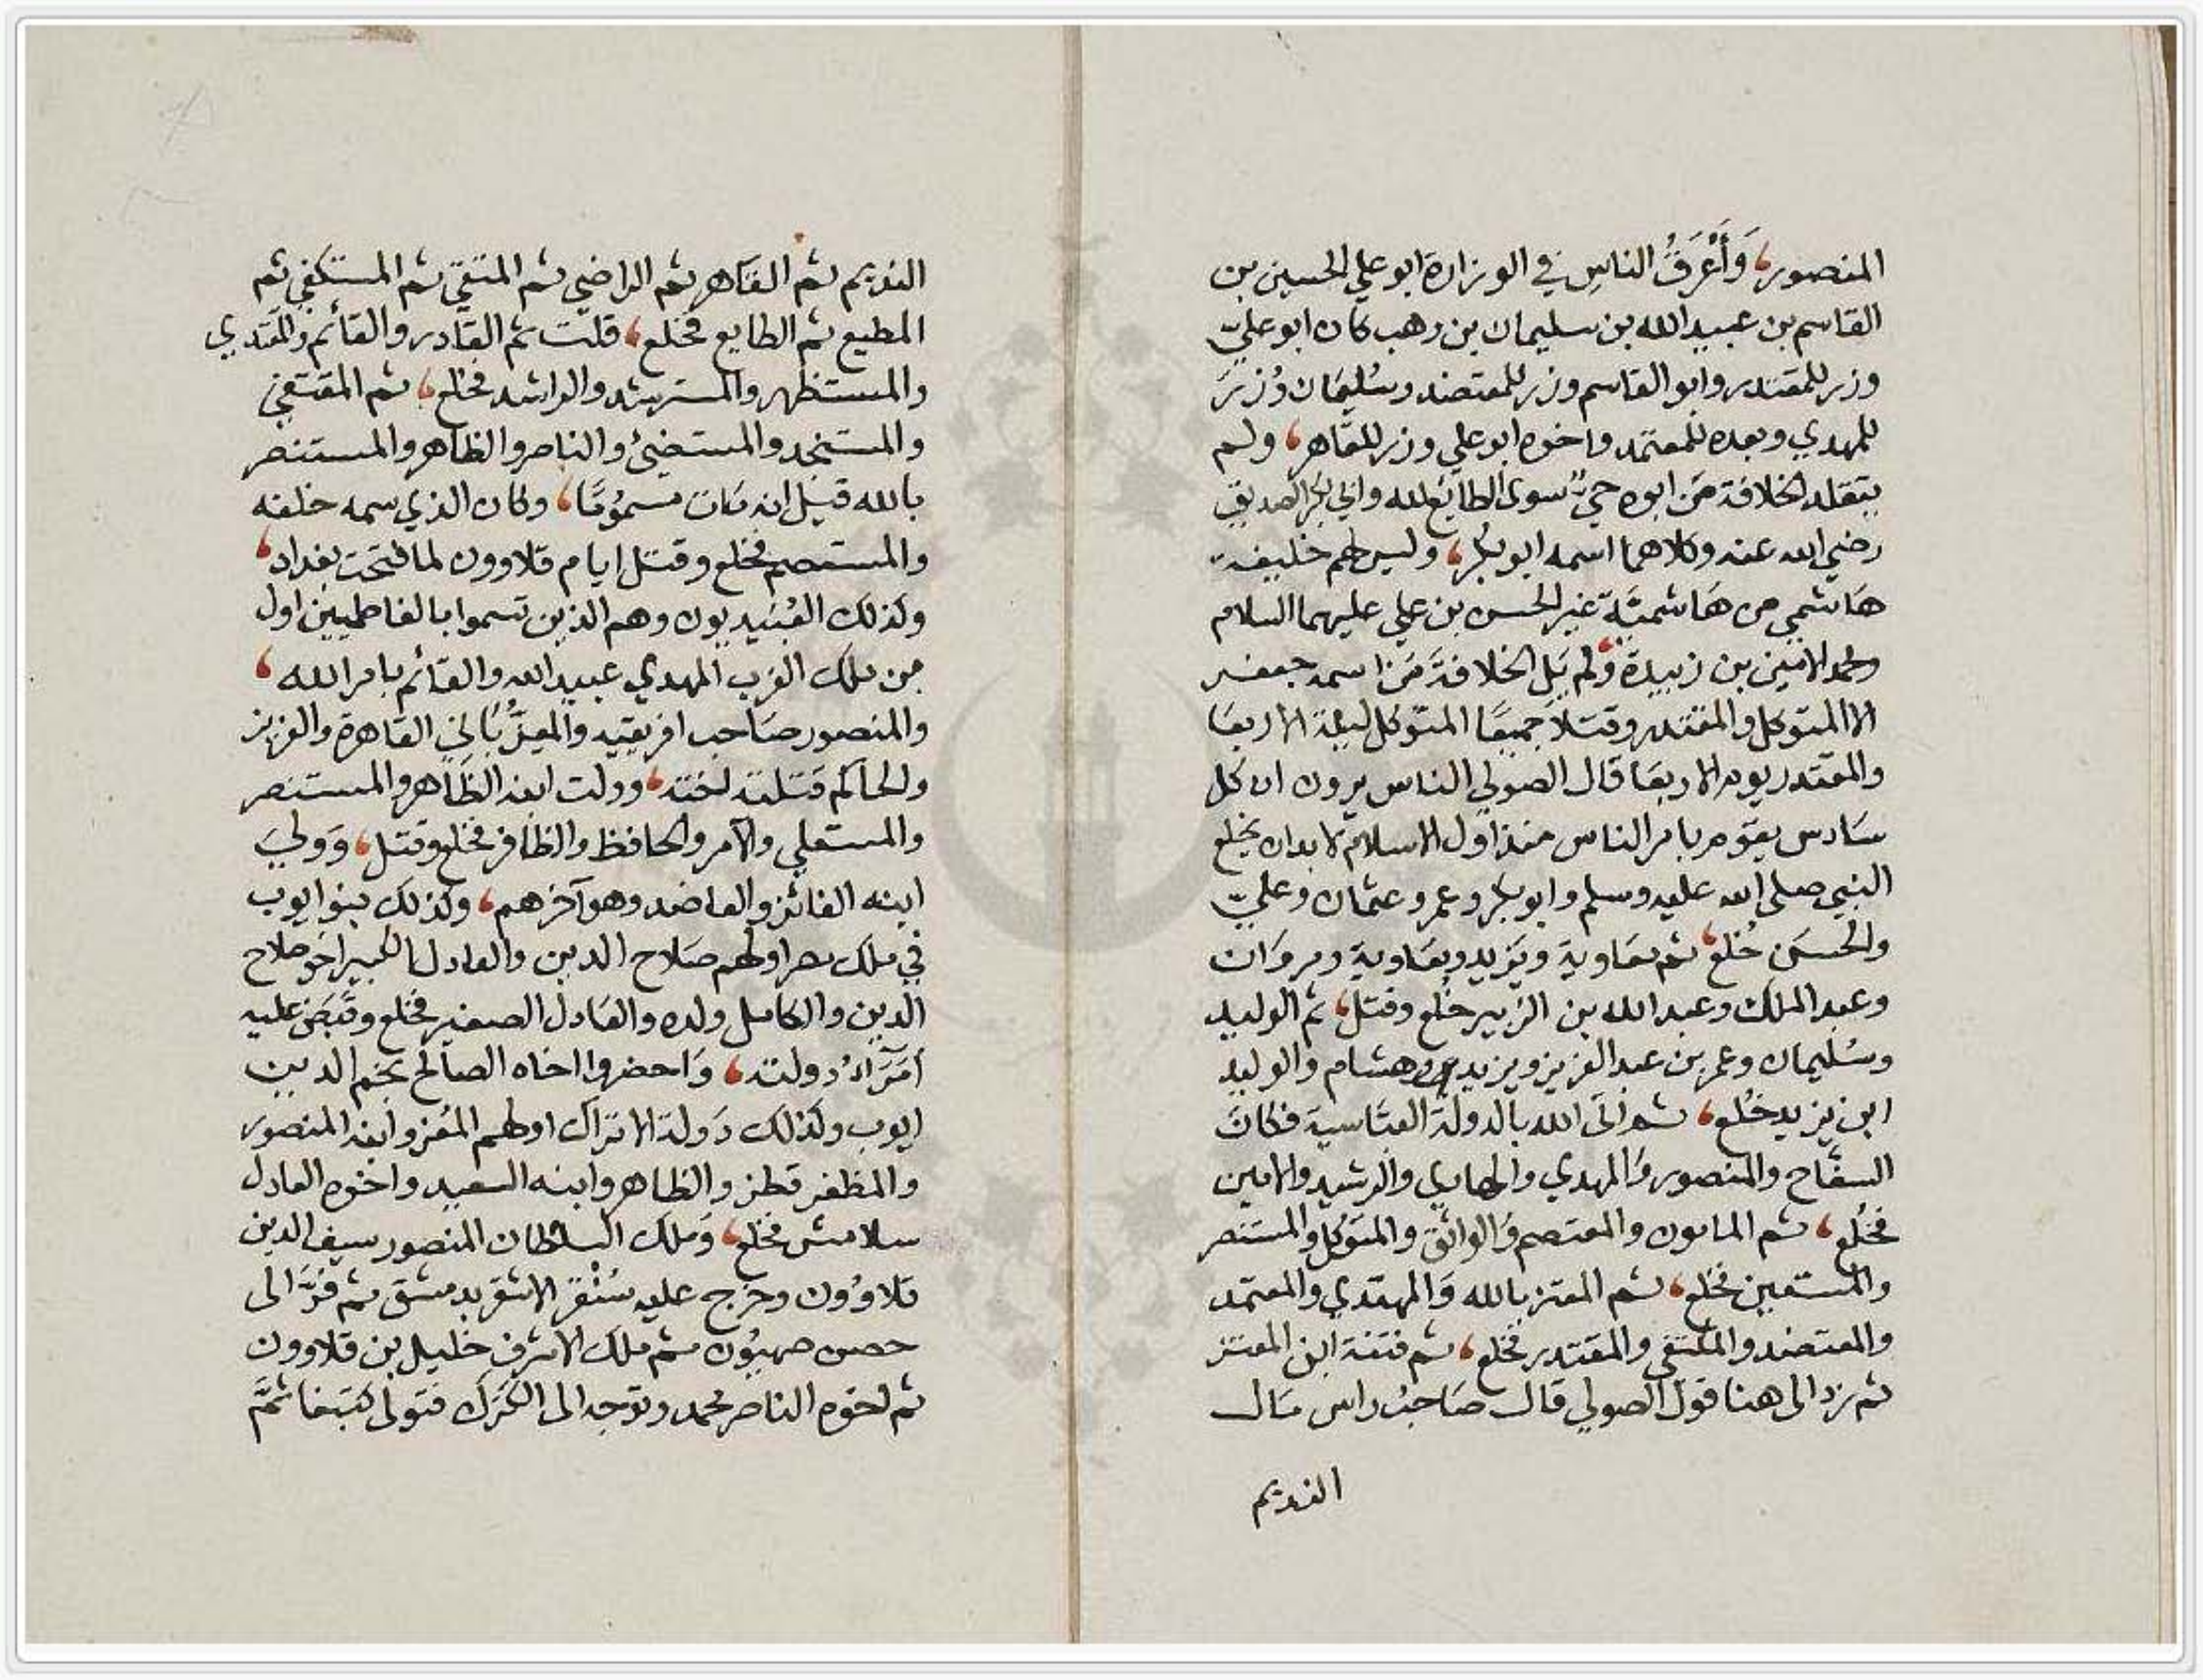 المنصور، وَأَعْرَقُ الناسِ في الوزارة ابو علي الحسين بن
القاسم بن عبيد الله بن سليمان بن وهب كان ابو عليّ
وزر للمقتدر وابو القاسم وزر للمعتضد وسُليمان وُزِرَ
للمهدي وبعده للمعتمد واخوه ابو علي وزر للقاهر، ولم
يتقلد الخلافة مَن ابوه حيٌّ سوى الطايع لله وابي بكر الصديق
رضي الله عنه وكلاهما اسمه ابو بكر، وليس لهم خليفة
هَاشمي من هَاشميَّة غير الحسن بن علي عليهما السلام
ومحمد الامين بن زبيدة، ولم يَل الخلافة مَن اسمه جعفر
الا المتوكل والمقتدر وقتلا جميعًا المتوكل ليلة الاربعَا
والمقتدر يوم الاربعَا قال الصولي الناس يرون ان كل
سَادس يقوم بامر الناس منذ اول الاسلام لا بد ان يخلع
النبي صلى الله عليه وسلم وابو بكر وعمر وعثمان وعليّ
والحسَن خُلع، ثم معَاوية ويَزيد ومعَاوية ومروَان
وعبد الملك وعبد الله بن الزبير خُلع وقتل، ثم الوليد
وسُليمان وعمر بن عبد العزيز ويزيد وهشام والوليد
ابن يزيد خُلع، ثم اتى الله بالدولة العبَّاسية فكانَ
السفّاح والمنصور والمهدي والهادي والرشيد والامين
فخُلع، ثم المامون والمعتصم والواثق والمتوكل والمنتصر
والمستعين فخلع، ثم المعتز بالله وَالمهتدي والمعتمد
والمعتضد والمكتفي والمقتدر فخلع، ثم فتنة ابن المعتز
ثم رد الى هنا قول الصولي قال صَاحبُ راس مَال
النديم
النديم ثم القَاهر ثم الراضي ثم المتقي ثم المستكفي ثم
المطيع ثم الطايع فخلع، قلت ثم القادر والقائم والمقتدي
والمستظهر والمسترشد والراشد فخلع، ثم المقتفي
والمستنجد والمستضيئ والناصر والظاهر والمستنصر
بالله قيل انه مَات مسمُومًا، وكان الذي سمه خلفه
والمستعصم فخلع وقتل ايام قلاوون لما فتحت بغداد،
وكذلك العُبَيديون وهم الذين تسموا بالفاطميين اول
من ملك الغرب المهدي عبيد الله والقائم بامر الله،
والمنصور صَاحب افريقيه والمعزُّ بَاني القاهرة والعزيز
والحاكم قتلته اخته، وولت ابنه الظاهر والمستنصر
والمستعلي والآمر والحافظ والظافر فخلع وقتل، وَوليَ
ابنه الفائز والعاضد وهو آخرهم، وكذلك بنو ايوب
في ملك مصر اولهم صَلاح الدين والعادل الكبير اخو صلاح
الدين والكامل ولده والعَادل الصغير فخلع وقَبَضَ عليه
اُمَرَآءُ دولته، وَاحضروا اخاه الصالح نجم الدين
ايوب وكذلك دَولة الاتراك اولهم المُعز وابنه المنصور
والمظفر قطز والظاهر وابنه السعيد واخوه العادل
سلامش فخلع، وَملك السلطان المنصور سيف الدين
قلاوُون وخرَج عليه سُنْقر الاشقر بدمشق ثم فرَّ الى
حصن صهيُون ثم ملك الاشرف خليل بن قلاوون
ثم اخوه الناصر محمد وتوجه الى الكَرَك فتولى كتبغا ثمَّ